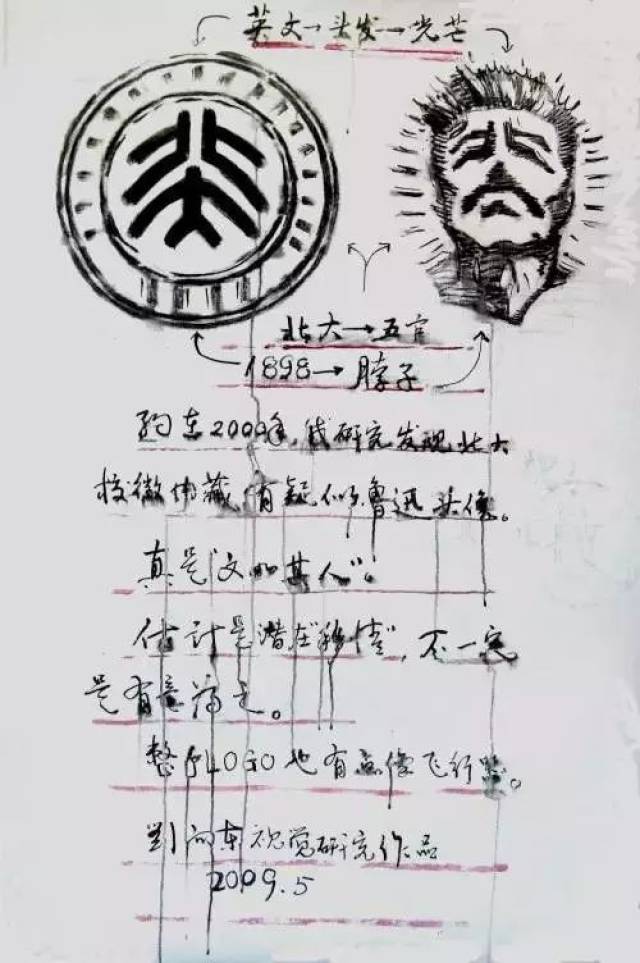 英文→头发→光芒
北大
北大→五官
1898→脖子
约在2000年,我研究发现北大
校徽内藏有疑似鲁迅头像。
真是"文如其人"。
估计是潜在"移情",不一定
是有意为之。
整个LOGO也有点像飞行器。
刘向东视觉研究作品
2009.5